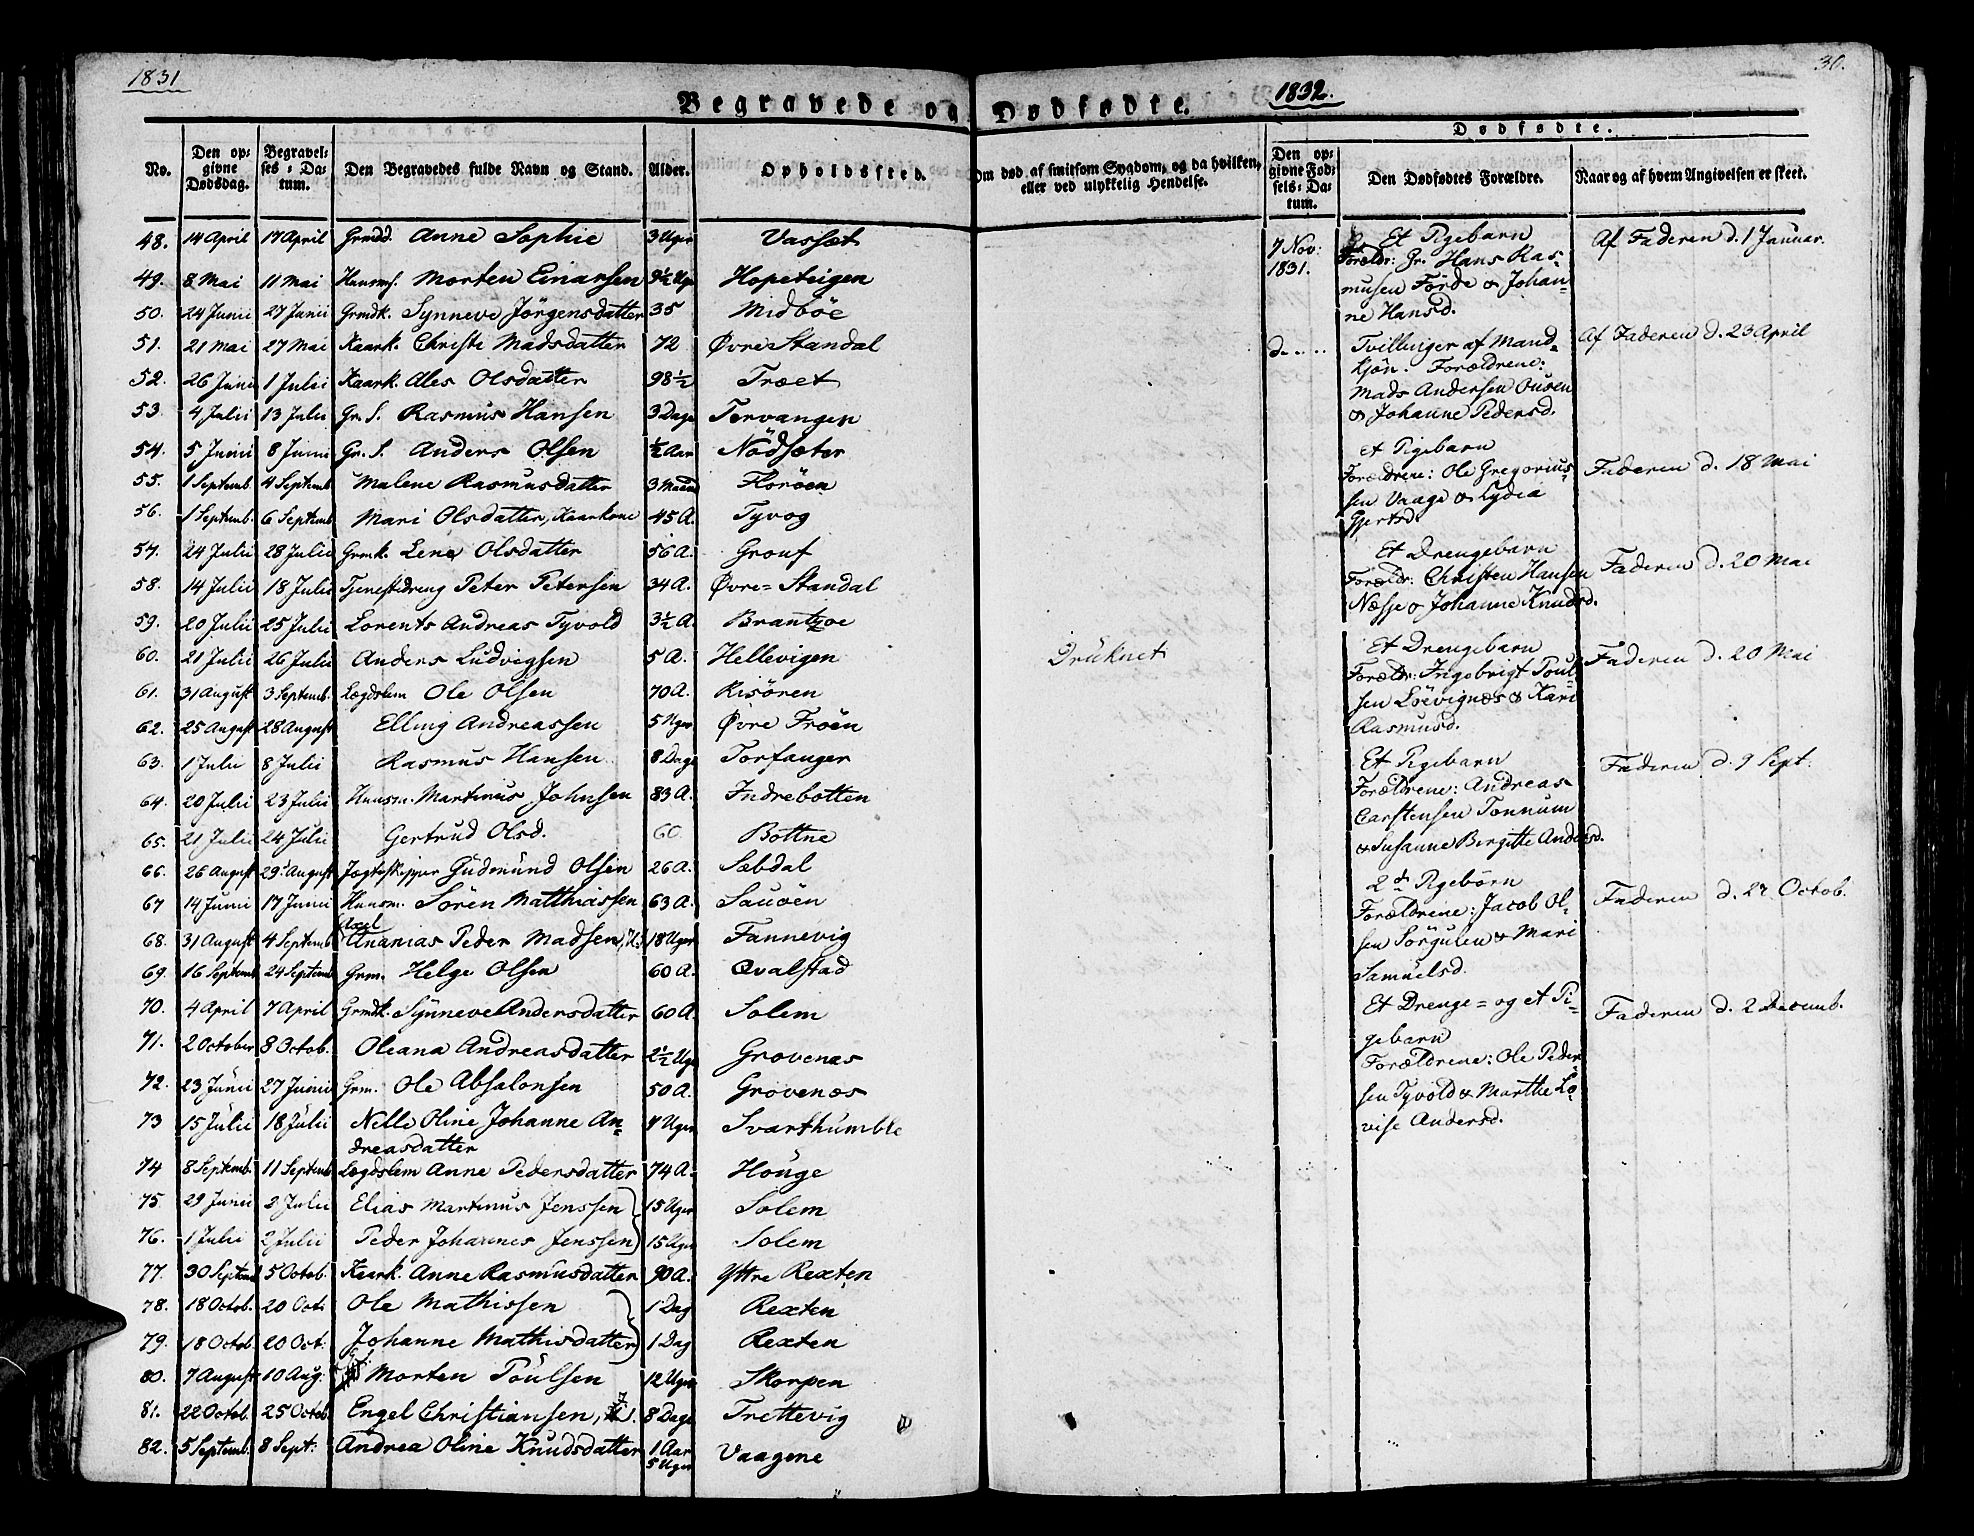 1831
30.
Begravede og Dødfødte.
1832.
No.
Den opgivne Dødsdag.
Begravelses-Datum.
Den Begravedes fulde Navn og Stand.
Alder.
Opholdssted.
Om død af smitsom Sygdom, og da hvilken, eller ved ulykkelig Hendelse.
Dødfødte.
Den opgivne Fødsels-Datum.
Den Dødfødtes Forældre.
Naar og af hvem Angivelsen er skeet.
48. 14 April 17 April Grmdd. Anne Sophie 3 Uger Vassæt
49. 8 Mai 11 Mai Huusms. Morten Einarsen 9½ Uge Hopeteigen
50. 24 Junii 27 Junii Grmdk. Synneve Jörgensdatter 35 Midböe
51. 21 Mai 27 Mai Kaark. Christi Madsdatter 72 Øvre Standal
52. 26 Junii 1 Julii Kaark. Ales Olsdatter 98½ Træet
53. 4 Julii 13 Julii Gr. S. Rasmus Hansen 3 Dage Tervangen
54. 5 Junii 8 Junii Gr. S. Anders Olsen ½ Aar Nödsæter
55. 1 Septemb 4 Septemb Malene Rasmusdatter 3 Maaned Floröen
56. 1 Septemb. 6 Septemb Mari Olsdatter, Kaarkone 45 A. Tyvog
57. 24 Julii 28 Julii Grmk. Lene Olsdatter 56 A. Grouf
58. 14 Julii 18 Julii Tjenestedreng Peter Petersen 34 A. Øvre= Standal
59. 20 Julii 25 Julii Lorents Andreas Tyvold 3½ A. Brantzoe
60. 21 Julii 26 Julii Anders Ludvigsen 5 A. Hellevigen Drüknet
61. 31 August 3 Septemb. Lægdslem Ole Olsen 70 A. Risören
62. 25 August 28 August Elling Andreassen 5 Uger Øvre Fröen
63. 1 Julii 8 Julii Rasmus Hansen 8 Dage Torfanger
64. 20 Julii 23 Julii Huusm. Martinus Johnsen 83 A. Indrebotten
65. 21 Julii 24 Julii Gertrud Olsd. 60. Bottne
66. 26 August 29 August Jægteskipper Gudmund Olsen 26 A. Sæbdal
67 14 Junii 17 Junii Huusm. Sören Matthiassen 63 A. Sauöen
68. 31 August 4 Septemb Axel Ananias Peder Madsen, 18 Uger Fannevig
69. 16 Septemb 24 Septemb Grm. Helge Olsen 60 A. Qvalstad
70. 4 April 7 April Grmdk. Synneve Andersdatter 60 A Solem
71. 2 October 8 Octob. Oleana Andreasdatter 2½ Uge Grovenæs
72. 23 Junii 27 Junii Grm. Ole Absalonsen 50 A. Grovenæs
73 15 Julii 18 Julii Nelle Oline Johanne An=
dreasdatter 4 Uger Svarthumble
74 8 Septemb. 11 Septemb Lægdslem Anne Pedersdatter 74 A. Houge
75 29 Junii 2 Julii Elias Martinus Jenssen 15 Uger Solem
76. 1 Julii 2 Julii Peder Johannes Jenssen 15 Uger Solem
77. 30 Septemb 5 Octob. Kaark. Anne Rasmusdatter 90 A. Yttre Rexten
78. 18 Octob. 20 Oct. Ole Mathissen 1 Dag Rexten
79. 18 Octob. 20 Oct. Johanne Mathisdatter 1 Dag Rexten
80. 7 August 10 Aug. Morten Poulsen 12 Uger Skorpen
81. 22 Octob. 25 Octob. Engel Christiansen, 8 Dage Trettevig
82. 5 Septemb. 8 Sept: Andrea Oline Knudsdatter 1 Aar 5 Uger Vaagene
7 Nov: 1831.
Et Pigebarn
Forældr: Gr. Hans Ras=
musen Förde & Johan=
ne Hansd.
Af Faderen d. 1 Januar.
d.
Tvillinger af Mand=
kjön. Forældrene:
Mads Andersen Ousen
& Johanne Pedersd.
Af Faderen d. 23 April
et Pigebarn
Forældrene: Ole Gregorius=
sen Vaage & Lydea
Gjertsd.
Faderen d. 18 Mai
Et Drengebarn
Forældr: Christen Hansen
Næsje & Johanne Knudsd.
Faderen d. 20 Mai
Et Drengebarn
Forældr: Ingebrigt Poul=
sen Löevignæs & Kari
Rasmusd.
Faderen d. 20 Mai
Et Pigebarn
Forældrene: Andreas
Carstensen Tonnum
& Susanne Birgitte Andersd.
Faderen d. 9 Sept.
2de Pigebörn
Forældrene: Jacob Ol=
sen Sörgulen & Mari
Samuelsd.
Faderen d. 27. Octob.
Et Drenge= og et Pi=
gebarn
Forældrene: Ole Peder
sen Tyvold & Marthe Lo=
vise Andersd.
Faderen d. 2 Decemb.